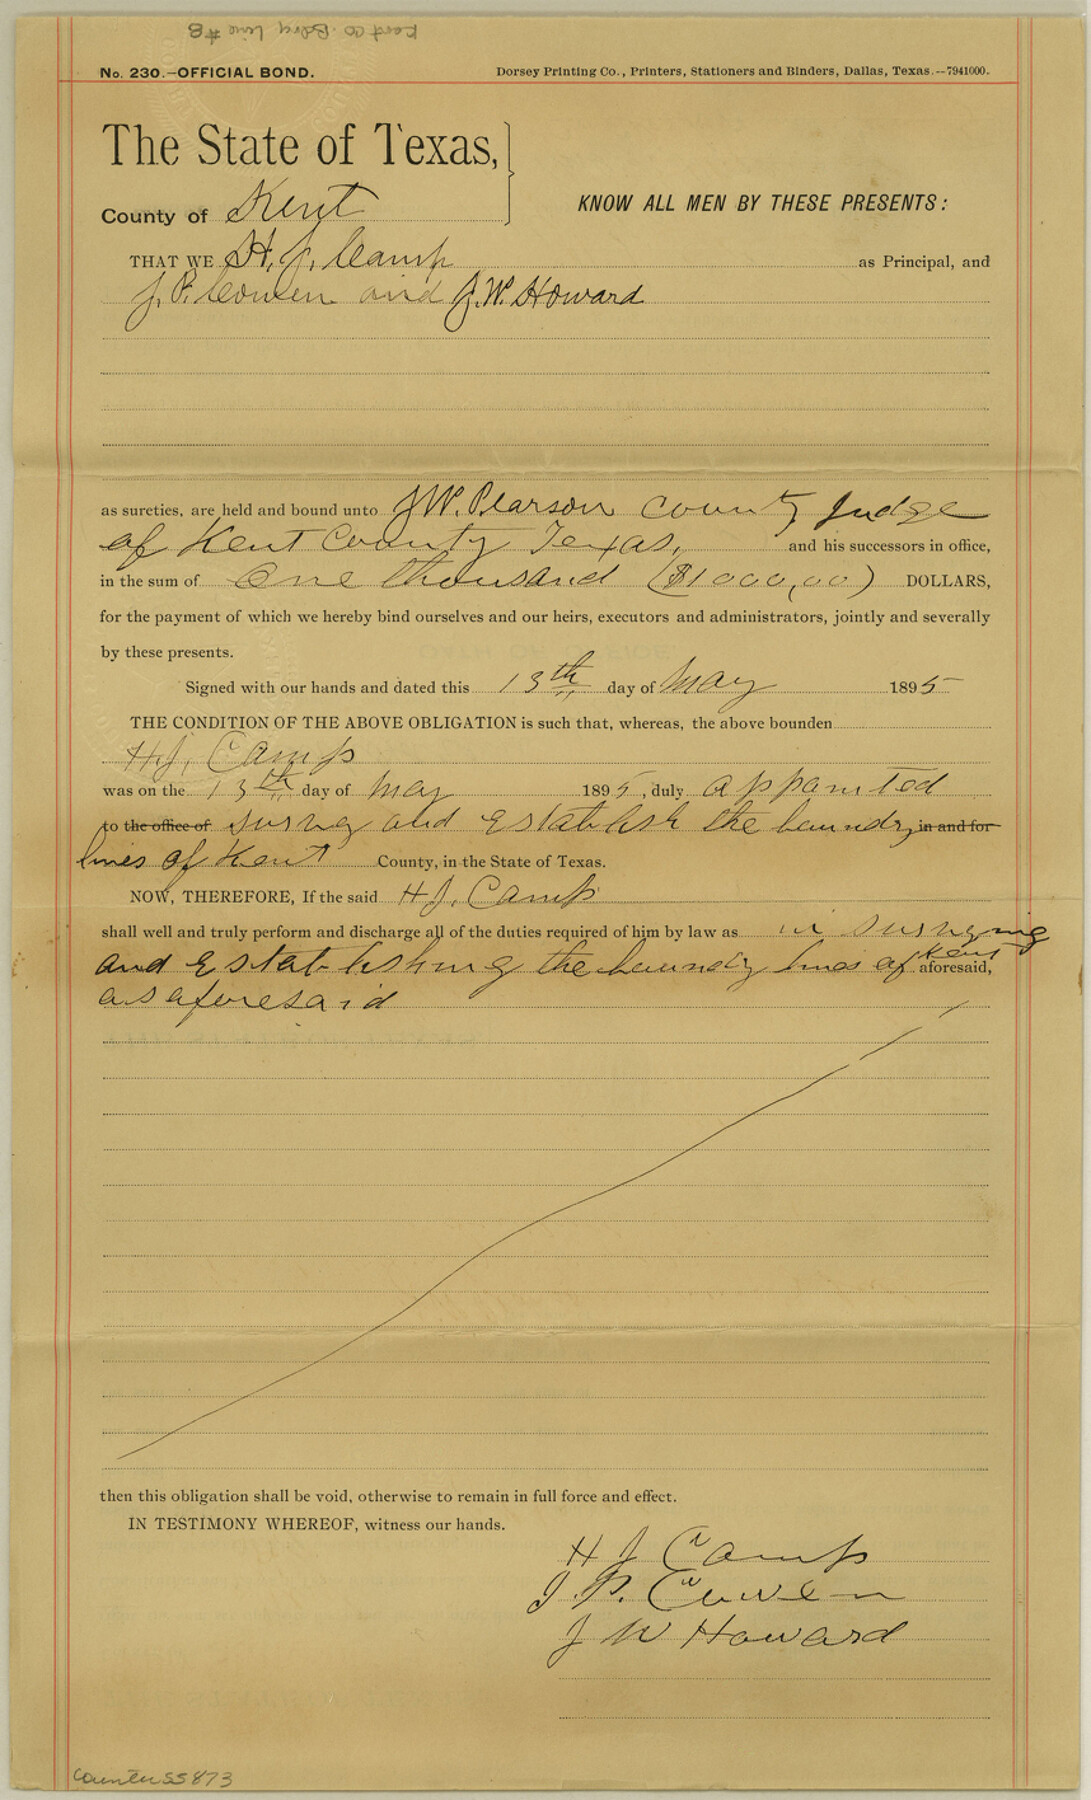 Kent Co. Bdry Line #8
No. 230.—OFFICIAL BOND. Dorsey Printing Co., Printers, Stationers and Binders, Dallas, Texas.—7941000.
The State of Texas,
County of Kent KNOW ALL MEN BY THESE PRESENTS:
THAT WE H. J. Camp as Principal, and
J. P. Cowen and J. W. Howard
as sureties, are held and bound unto J W. Pearson County Judge
of Kent County Texas, and his successors in office,
in the sum of One thousand ($1000,00) DOLLARS,
for the payment of which we hereby bind ourselves and our heirs, executors and administrators, jointly and severally
by these presents.
Signed with our hands and dated this 13th day of May 1895
THE CONDITION OF THE ABOVE OBLIGATION is such that, whereas, the above bounden
H. J. Camp
was on the 13th day of May 1895, duly appointed
to the office of survey and establish the boundry in and for
lines of Kent County, in the State of Texas.
NOW, THEREFORE, If the said H J. Camp
shall well and truly perform and discharge all of the duties required of him by law as in surveying
and establishing the boundry lines of Kent aforesaid,
as aforesaid
then this obligation shall be void, otherwise to remain in full force and effect.
IN TESTIMONY WHEREOF, witness our hands.
H J Camp
J. P. Cowen
J W Howard
counter 55873